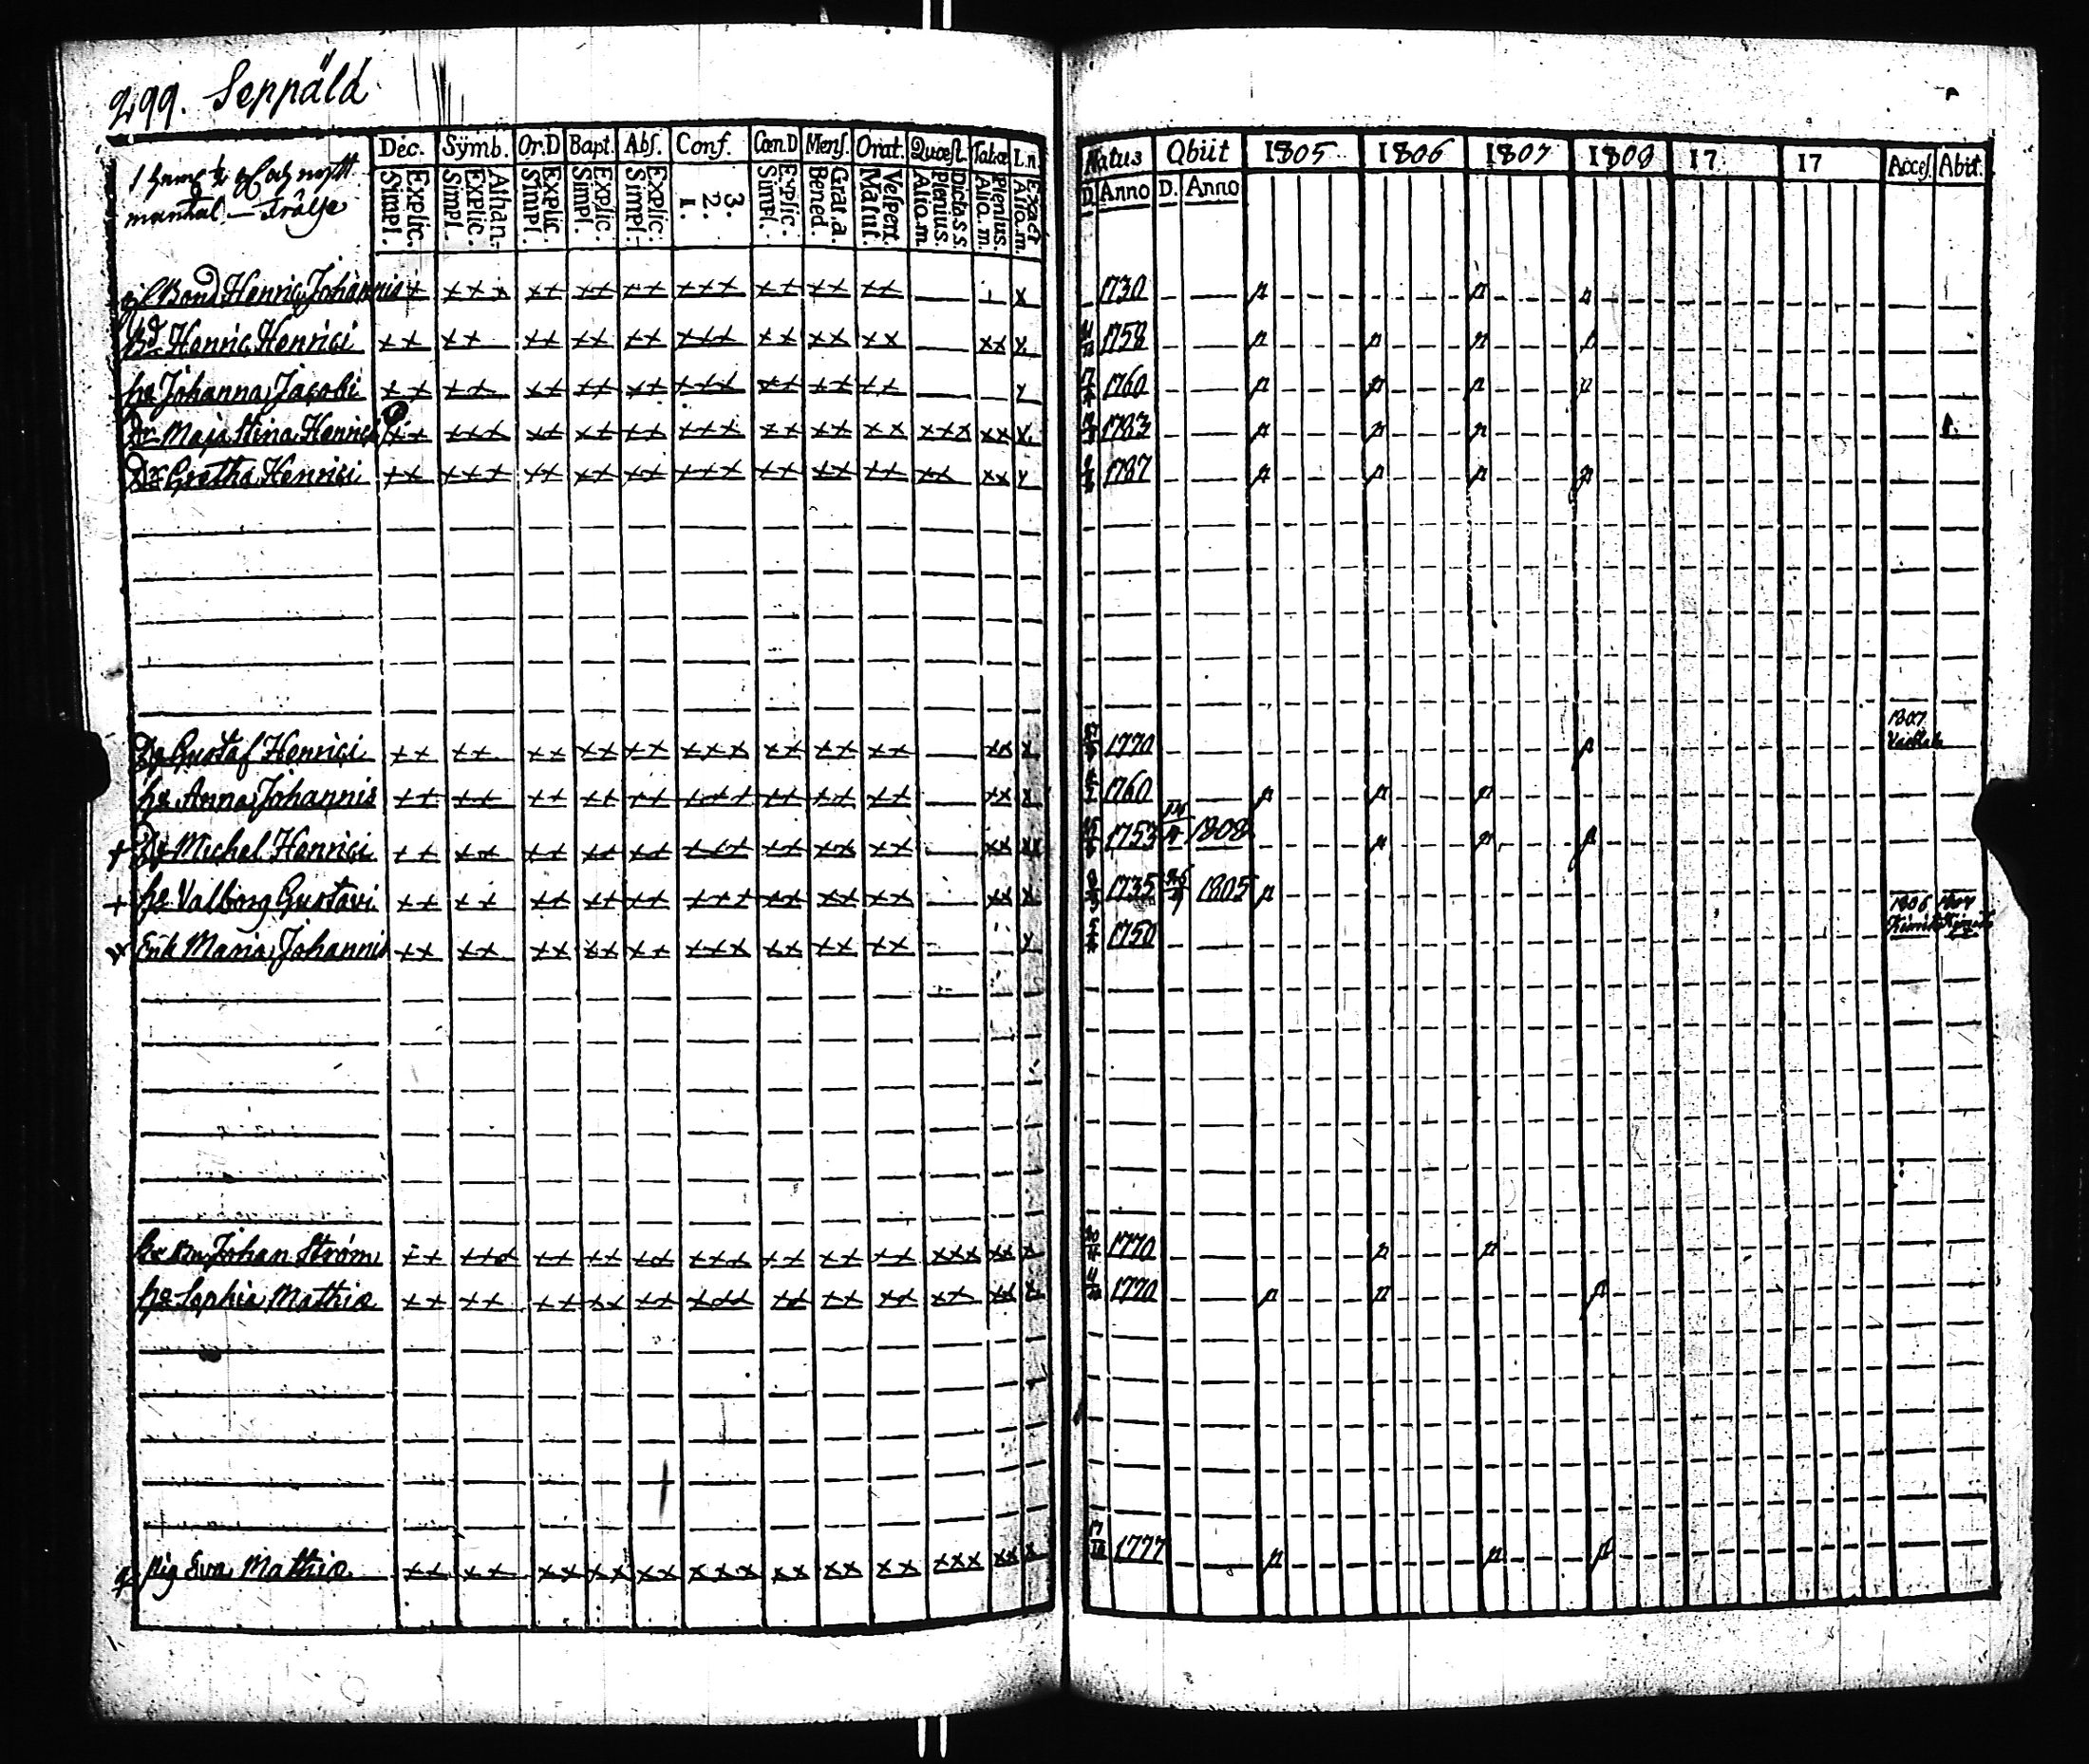 299. Seppälä
mantal. — Frälse
Dec. Symb. Or.D Bapt. Abs. Conf. Cœn.D Mens. Orat. Quæst. Tab.œ L.n
Explic. Simpl. Athan. Explic. Simpl. Explic. Simpl. Explic. Simpl. Explic. Simpl. 3. 2. 1. Explic. Simpl. Grat. a. Bened. Vespert. Matut. Dicta s.s. Plenius. Alio. m. Plenius. Alio. m. Exact Alio. m.
Natus Obiit 1805 1806 1807 1808 17 17 Acces. Abit.
D Anno D. Anno
Bond Henric Johannis xxx xx xx xx xxx xx xx xx x 1730
Bd Henric Henrici xx xx xx xx xx xxx xx xx xx xx x 1758
hu Johanna Jacobi xx xx xx xx xx xxx xx xx xx x 1760
Dr Maja Stina Henrici xx xxx xx xx xx xxx xx xx xx xxx xx x 1783
Dr Gretha Henrici xx xxx xx xx xx xxx xx xx xx xx xx x 1787
Gustaf Henrici xx xx xx xx xx xxx xx xx xx xx x 1770 1807
hu Anna Johannis xx xx xx xx xx xxx xx xx xx xx x 1760
+ Michel Henrici xx xx xx xx xx xxx xx xx xx xx xx 1753 1808
+ hu Valborg Gustavi xx xx xx xx xx xxx xx xx xx xx x 1735 26/9 1805
Enk Maria Johannis xx xx xx xx xx xxx xx xx xx x 1750 1806
Johan Ström xx xxx xx xx xx xxx xx xx xx xxx xx x 1770
hu Sophia Mathiæ xx xx xx xx xx xxx xx xx xx xx xx x 1770
pig Eva Mathiæ xx xx xx xx xx xxx xx xx xx xxx xx x 17/12 1777